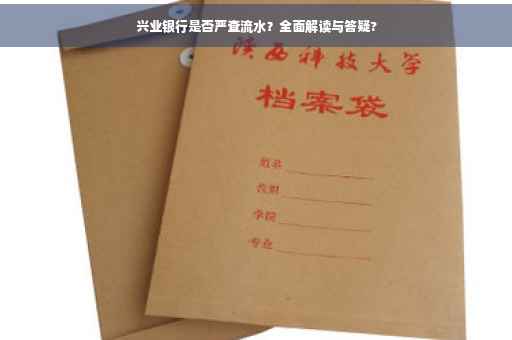 兴业银行是否严查流水？全面解读与答疑？
陕西科技大学
档案袋
姓名
学院
专业